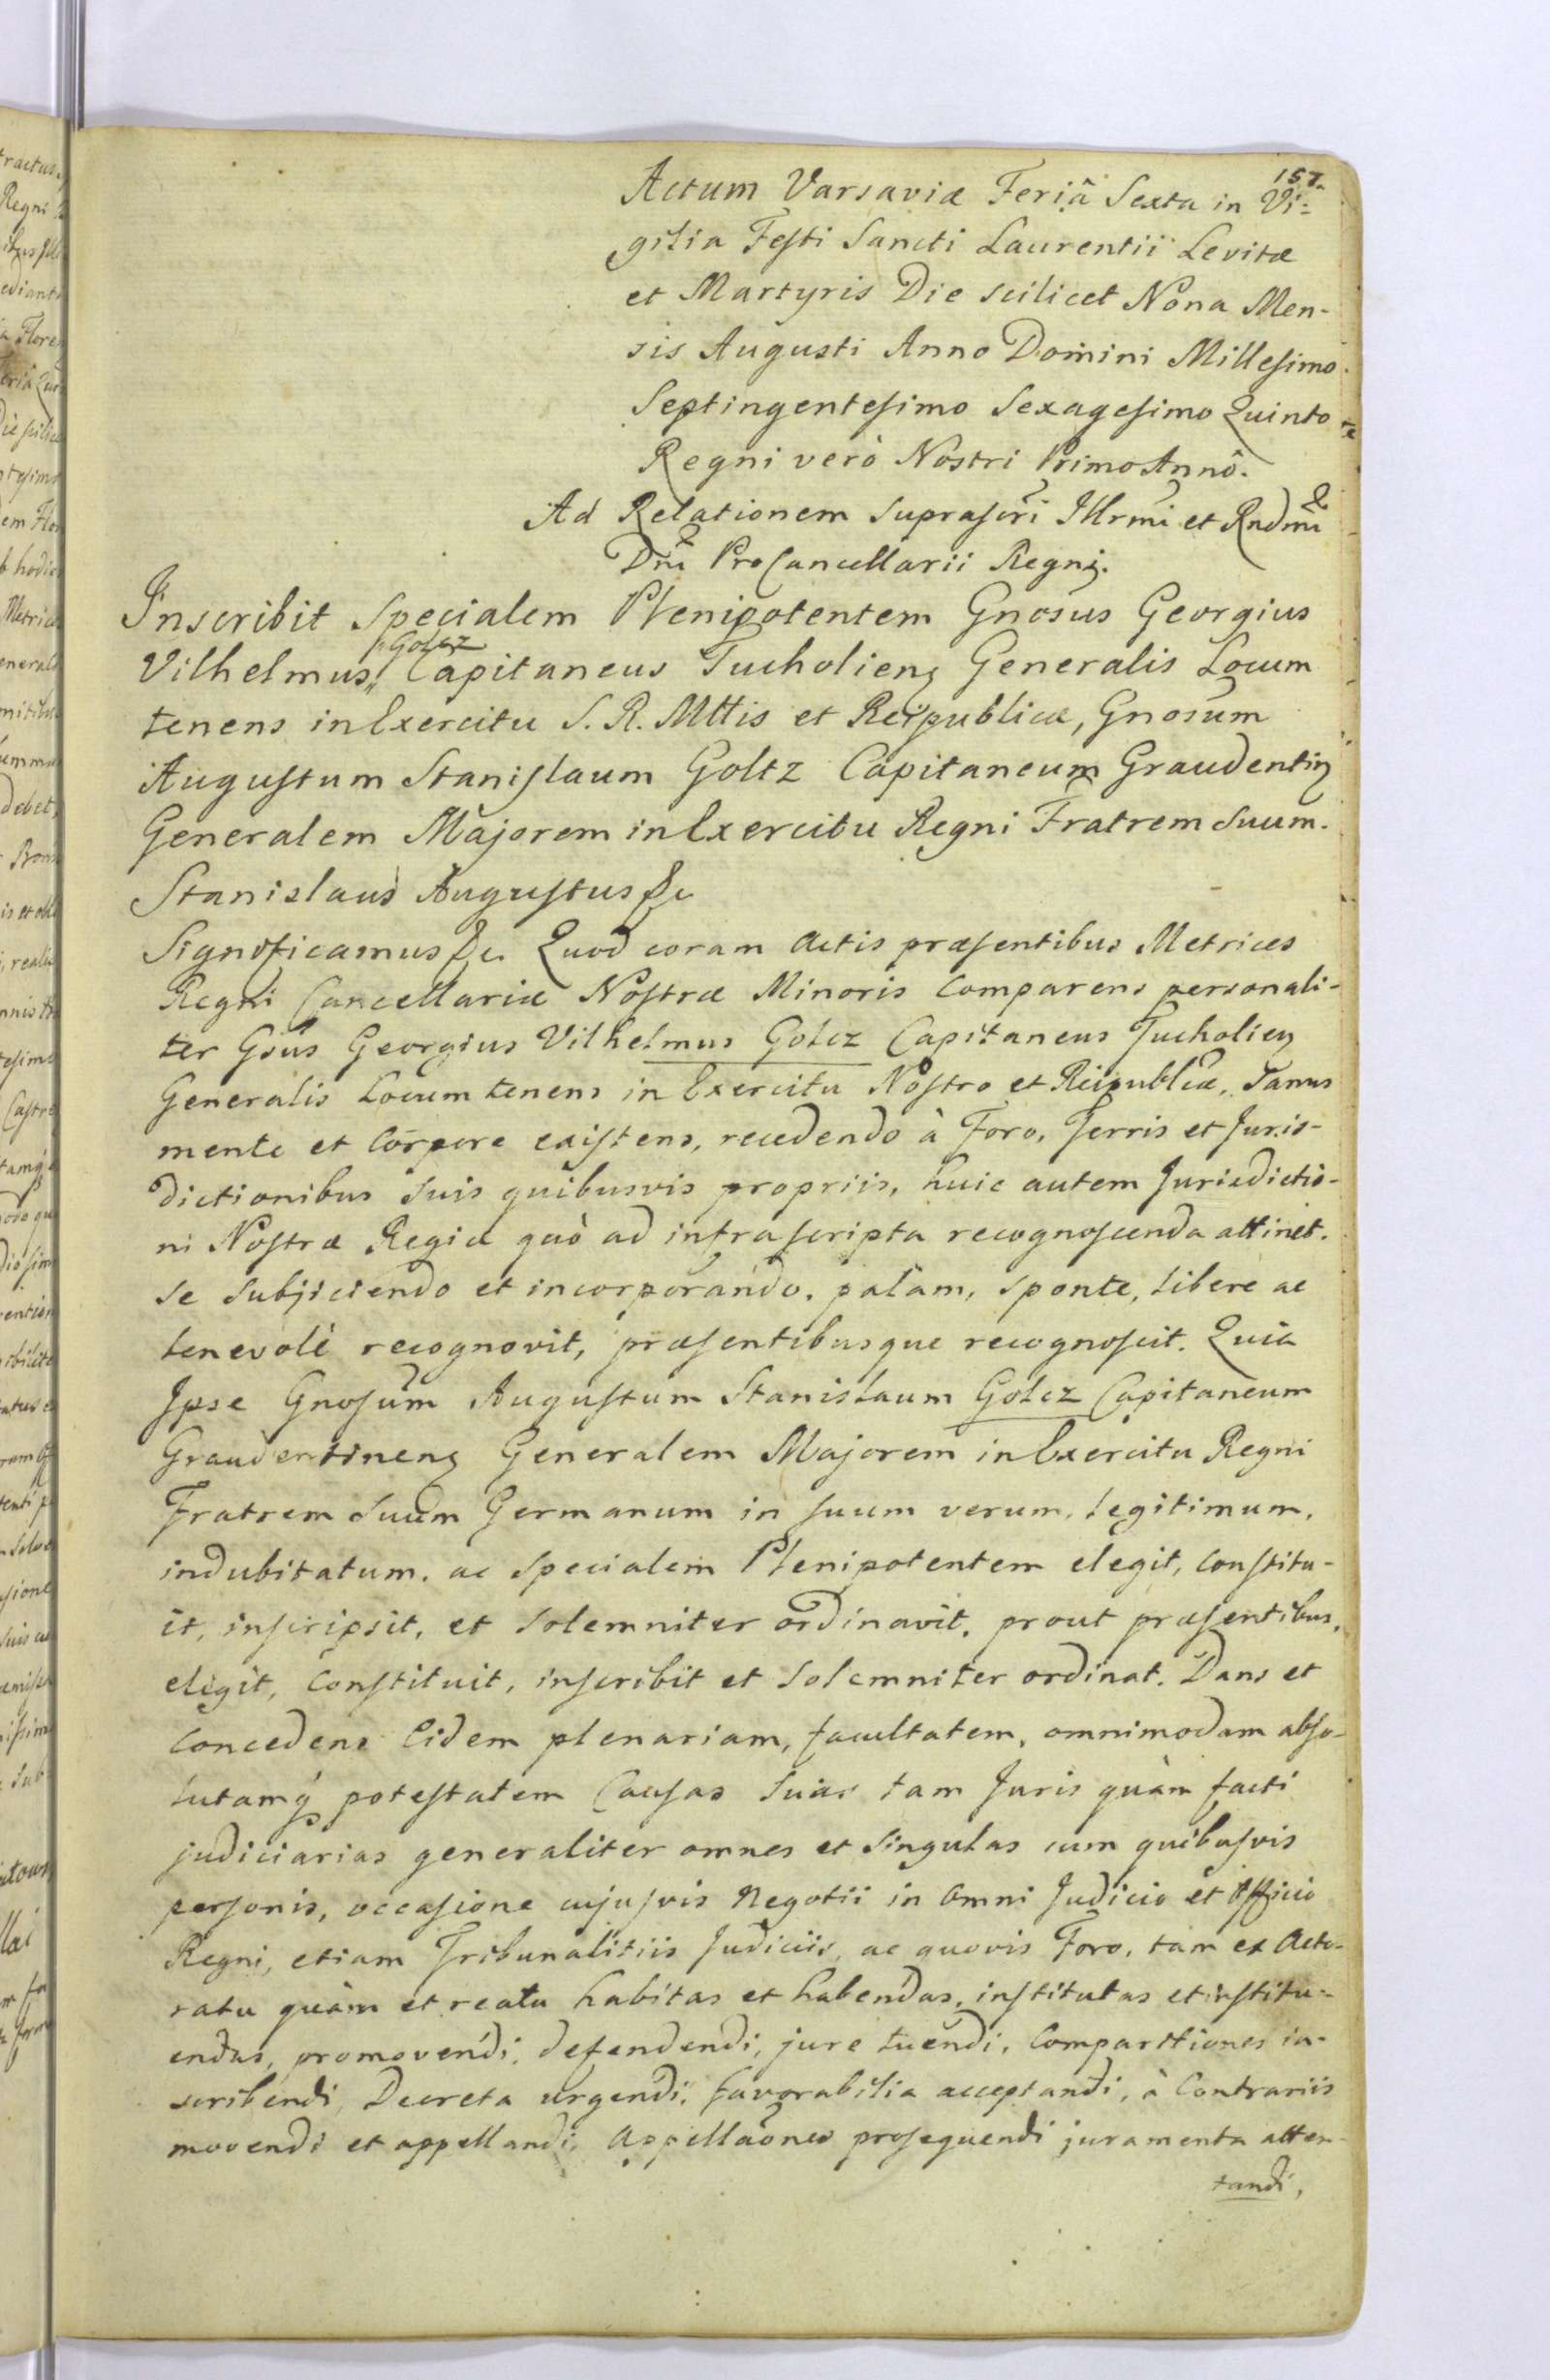 157.
Actum Varsaviæ Feriâ Sexta in Vi-
gilia Festi Sancti Laurentii Levitæ
et Martyris Die scilicet Nona Men-
sis Augusti Anno Domini Millesimo
Septingentesimo Sexagesimo Quinto
Regni verò Nostri Primo Annô.
Ad Relationem suprascri Illrmi et Rndmi
Dni ProCancellarii Regni.
Inscribit Specialem Plenipotentem Gnosus Georgius
Golcz
Vilhelmus Capitaneus Tucholiens Generalis Locum
tenens in Exercitu S. R. Mttis et Reipublicæ, Gnosum
Augustum Stanislaum Goltz Capitaneum Graudentin
Generalem Majorem in Exercitu Regni Fratrem Suum.
Stanislaus Augustus &c
Significamus &c. Quod coram Actis præsentibus Metrices
Regni Cancellariæ Nostræ Minoris Comparens personali-
ter Gsus Georgius Vilhelmus Golcz Capitaneus Tucholien
Generalis Locum tenens in Exercitu Nostro et Reipublicæ, Sanus
mente et Corpore existens, recedendo à Foro, Terris et Juris-
dictionibus Suis quibusvis propriis, huic autem Jurisdictio-
ni Nostræ Regiæ quò ad infrascripta recognoscenda attinet.
se subjiciendo et incorporando, palam, sponte, libere ac
benevolè recognovit, præsentibusque recognoscit. Quia
Ipse Gnosum Augustum Stanislaum Golcz Capitaneum
Graudentinens Generalem Majorem in Exercitu Regni
Fratrem Suum Germanum in suum verum, legitimum,
indubitatum, ac specialem Plenipotentem elegit, constitu-
it, inscripsit, et solemniter ordinavit, prout præsentibus,
elegit, Constituit, inscribit et Solemniter ordinat. Dans et
Concedens Eidem plenariam, facultatem, omnimodam abso-
lutamq potestatem Causas Suas tam Juris quàm facti
judiciarias generaliter omnes et Singulas cum quibusvis
personis, occasione cujusvis Negotii in Omni Judicio et Officio
Regni, etiam Tribunalitiis Judiciis, ac quovis Foro, tam ex Acto-
ratu quàm et reatu habitas et habendas, institutas et institu-
endas, promovendi, defendendi, jure tuendi, Comparitiones in-
scribendi, Decreta urgendi, favorabilia acceptandi, à Contrariis
movendi et appellandi, Appellaones prosequendi juramenta atten-
tandi,